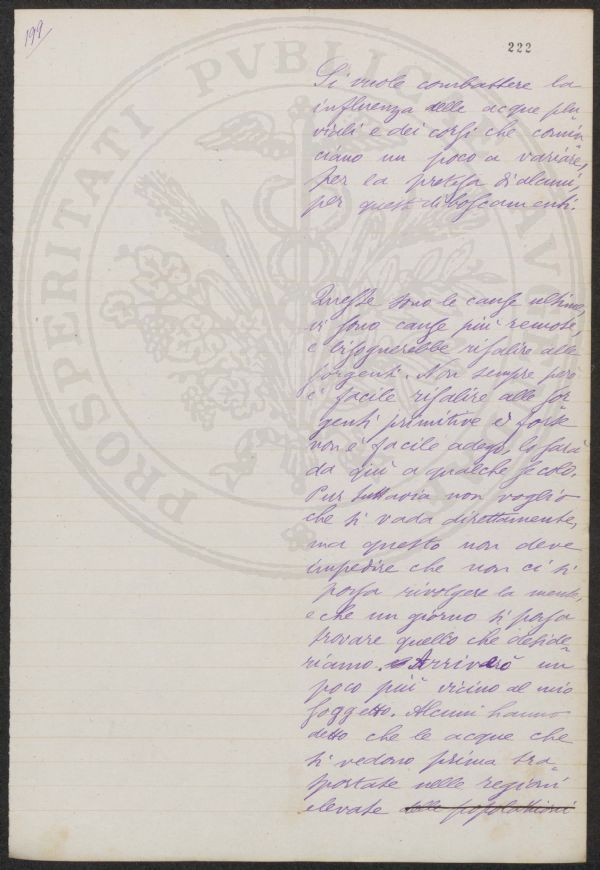 199
222
Si vuole combattere la
influenza delle acque plu
viali e dei corsi che comin
ciano un poco a variare,
per la pretesa di alcuni,
per questi diboscamenti.
Queste sono le cause ultime,
vi sono cause più remote,
e bisognerebbe risalire alle
sorgenti. Non sempre però
è facile risalire alle sor
genti primitive e forse
non è facile adesso, lo sarà
da qui a qualche secolo.
Pur tuttavia non voglio
che si vada direttamente,
ma questo non deve
impedire che non ci si
possa rivolgere la mente,
e che un giorno si possa
trovare quello che deside
riamo. Arriverò un
poco più vicino al mio
soggetto. Alcuni hanno
detto che le acque che
si vedono prima tra
sportate nelle regioni
elevate delle popolazioni
PROSPERITATI PVBLICAE AVGENDAE